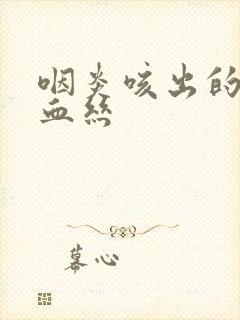 咽炎咳出的
血丝
幕心